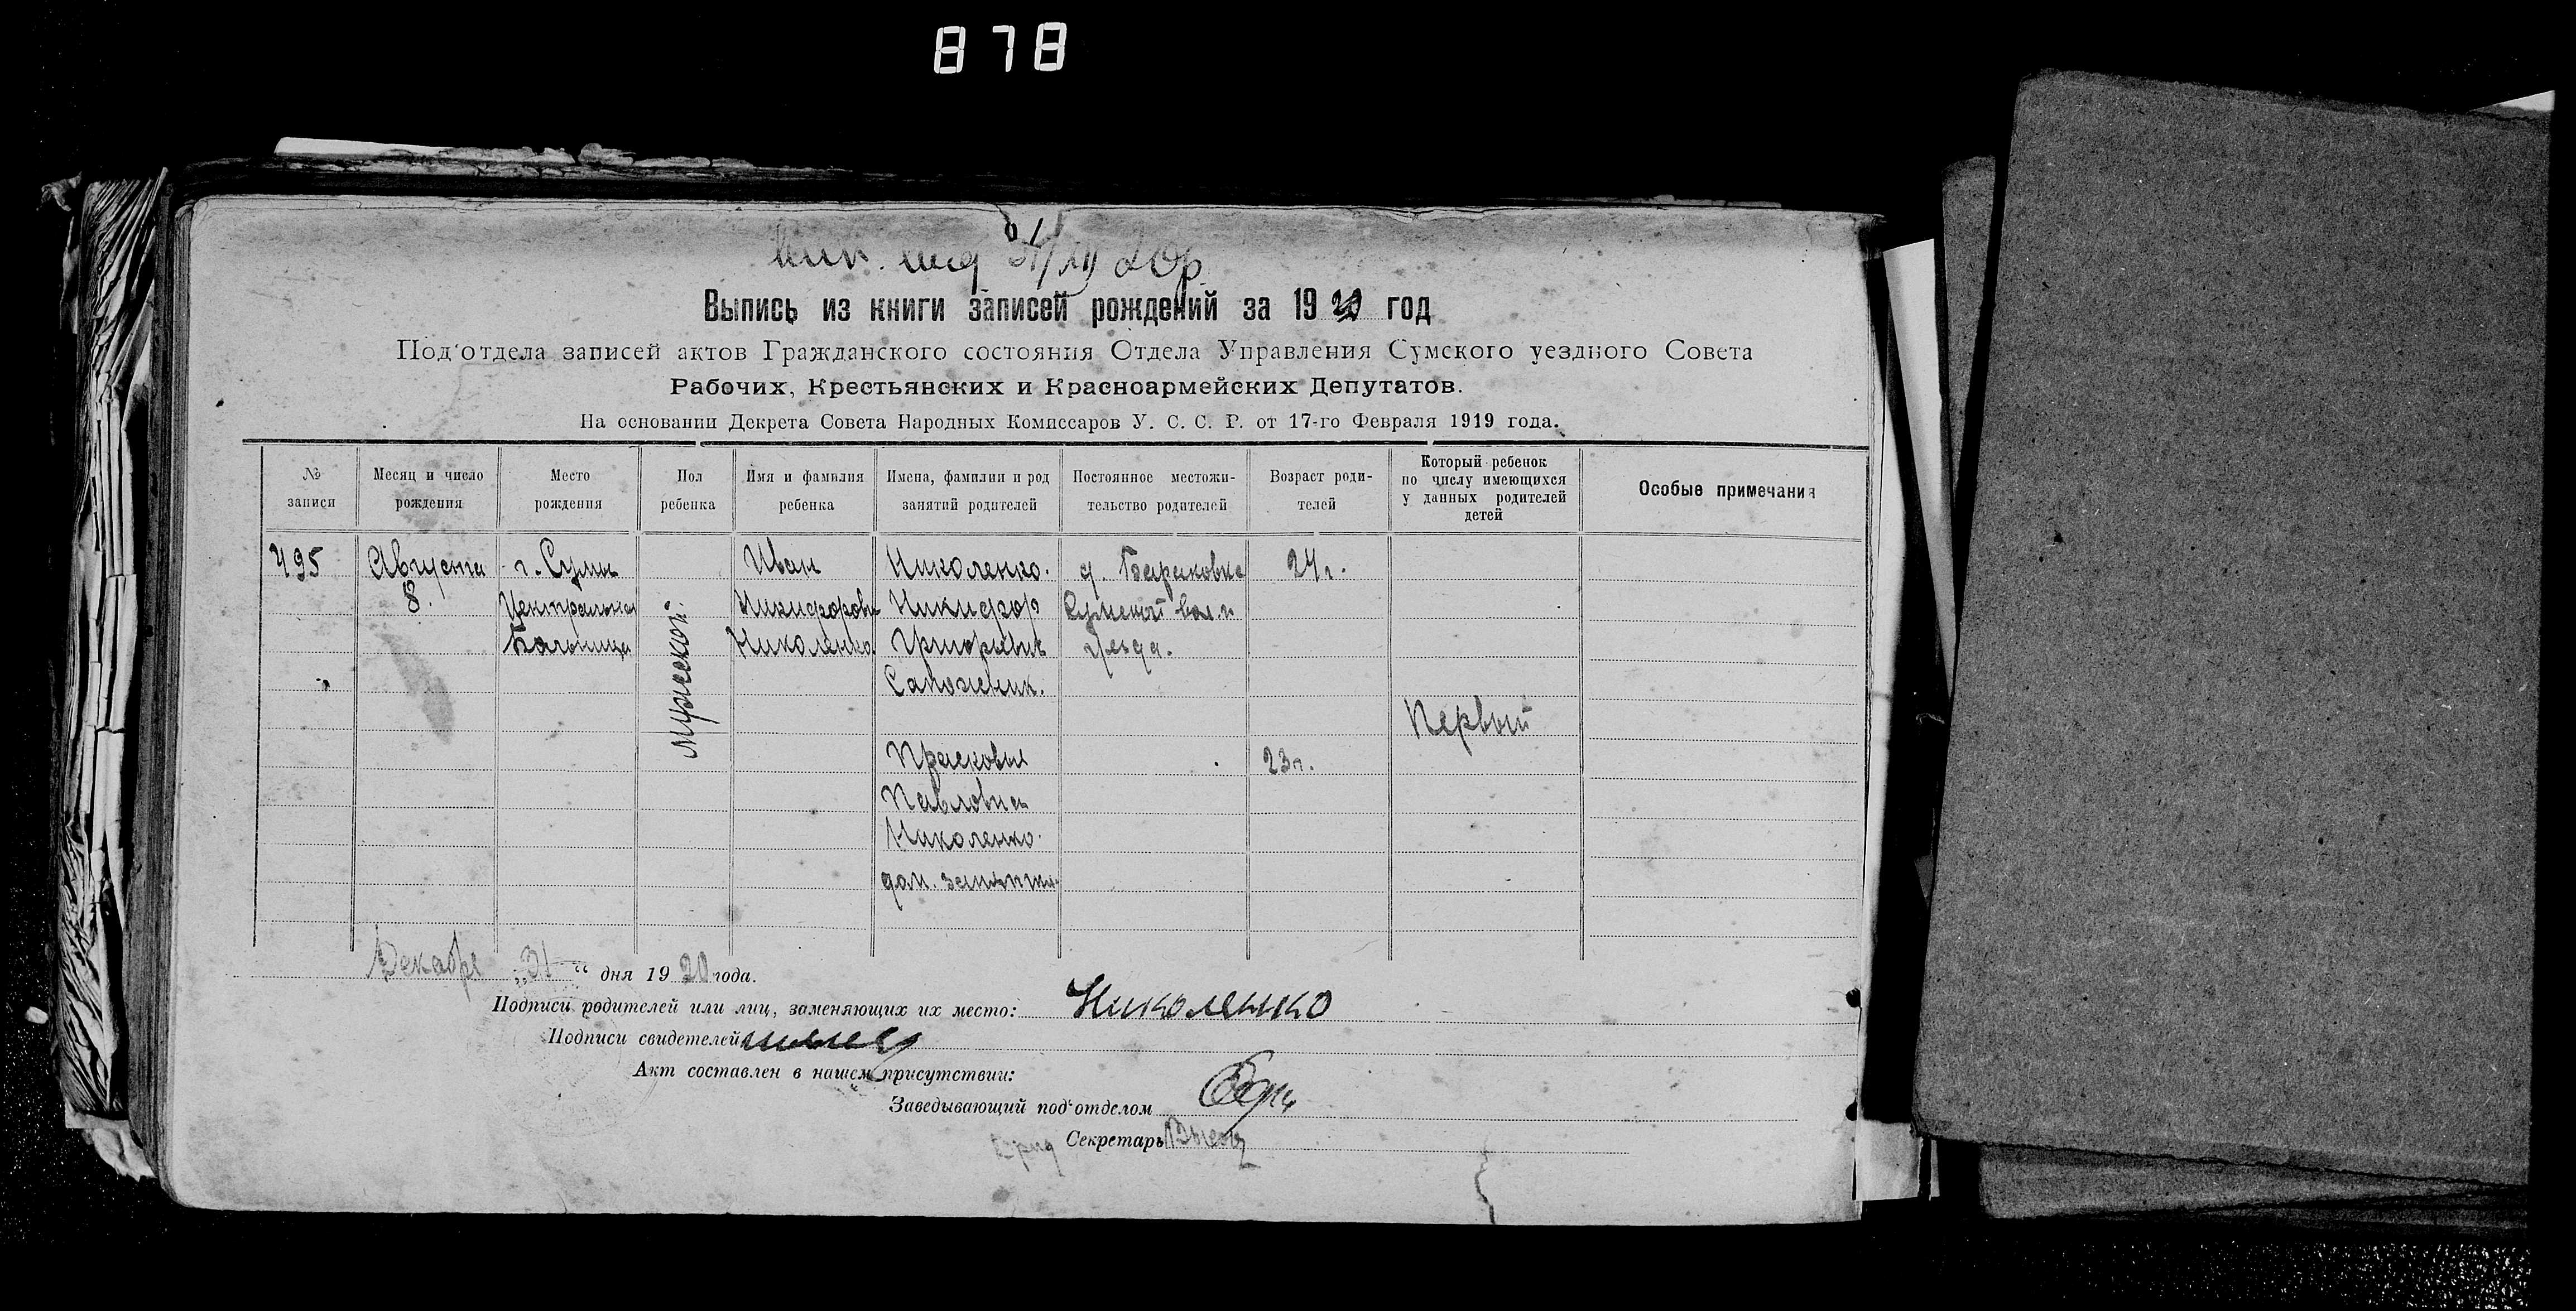 878
31/XII 20 г.
Выпись из книги записей рождений за 1920 год
Под‘отдела записей актов Гражданского состояния Отдела Управления Сумского уездного Совета
Рабочих, Крестьянских и Красноармейских Депутатов.
На основании Декрета Совета Народных Комиссаров У. С. С. Р. от 17-го Февраля 1919 года.
№ записи
Месяц и число рождения
Место рождения
Пол ребенка
Имя и фамилия ребенка
Имена, фамилии и род занятий родителей
Постоянное местожительство родителей
Возраст родителей
Который ребенок по числу имеющихся у данных родителей детей
Особые примечания
495
Августа
8.
г. Сумы
Центральная
Больница
мужеской.
Иван
Никифорович
Николенко
Николенко.
Никифор
Григорьевич
Сапожник.
д. Барановка
Сумской вол. и
уезда.
24 г.
Первый
Прасковья
Павловна
Николенко.
дом. занятия.
23 г.
Декабря „31“ дня 1920 года.
Подписи родителей или лиц, заменяющих их место: Николенко
Подписи свидетелей
Акт составлен в нашем присутствии:
Заведывающий под‘отделом
Секретарь